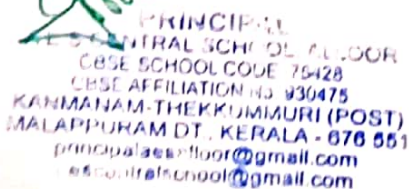 PRINCIPAL
CENTRAL SCHOOL
CBSE SCHOOL CODE 75428
CBSE AFFILIATION No 930475
KANMANAM-THEKKUMMURI (POST)
MALAPPURAM DT., KERALA - 676 551
@gmail.com
@gmail.com